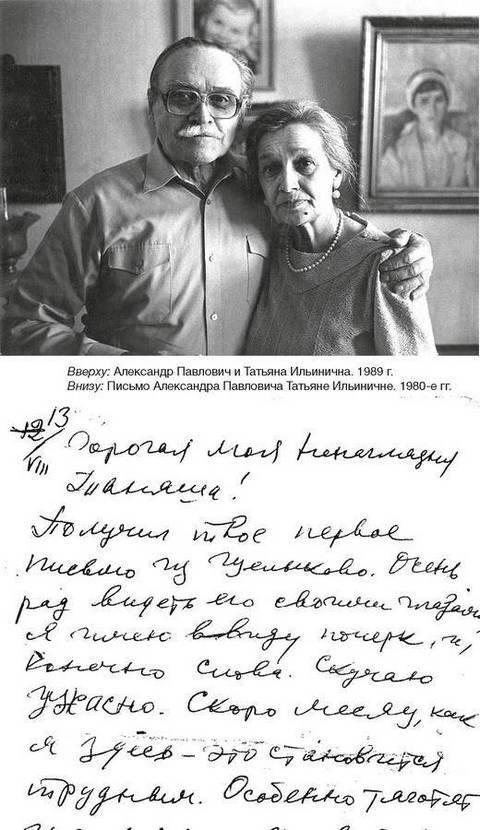 Вверху: Александр Павлович и Татьяна Ильинична. 1989 г.
Внизу: Письмо Александра Павловича Татьяне Ильиничне. 1980-е гг.
12 13
VIII Дорогая моя ненаглядная
Таняша!
Получил твое первое
письмо из Очень
рад видеть его своими глазами
Я имею ввиду почерк, и,
конечно слова. Скучаю
ужасно. Скоро месяц, как
я здесь – это становится
трудным. Особенно тяготят